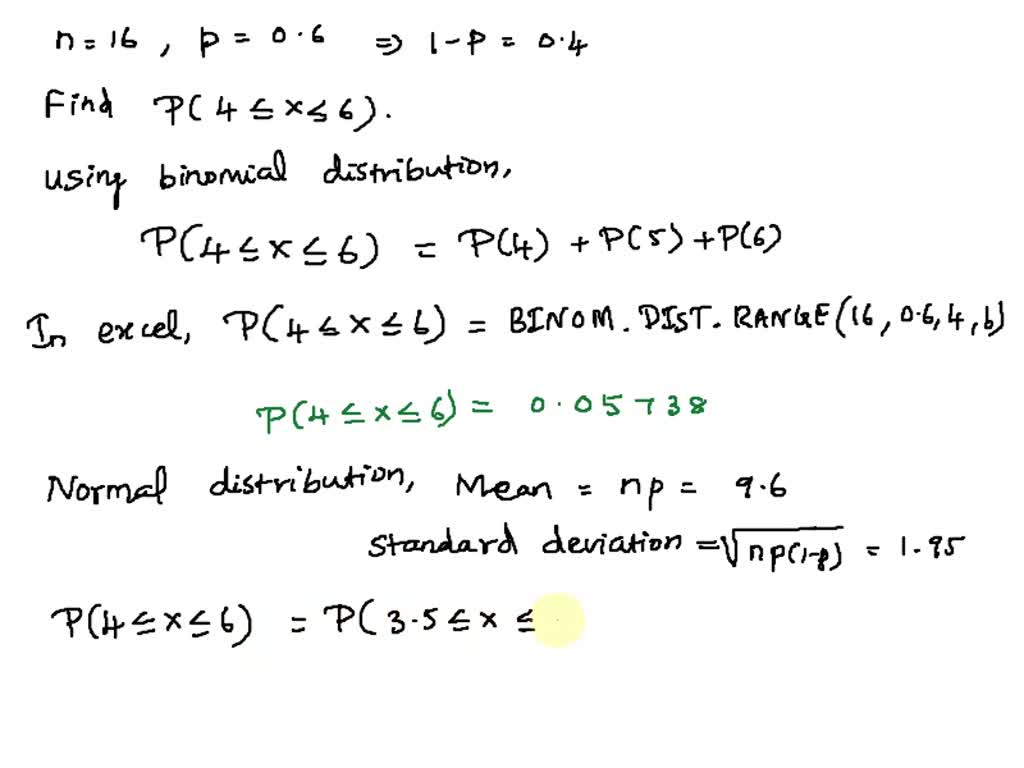 n = 16 , p = 0.6 ⇒ 1-p = 0.4
Find P( 4 ≤ x ≤ 6 ).
using binomial distribution,
P(4 ≤ x ≤ 6) = P(4) + P(5) + P(6)
In excel, P(4 ≤ x ≤ 6) = BINOM.DIST.RANGE(16, 0.6, 4, 6)
P(4 ≤ x ≤ 6) = 0.05738
Normal distribution, Mean = np = 9.6
standard deviation = √np(1-p) = 1.95
P(4 ≤ x ≤ 6) = P( 3.5 ≤ x ≤